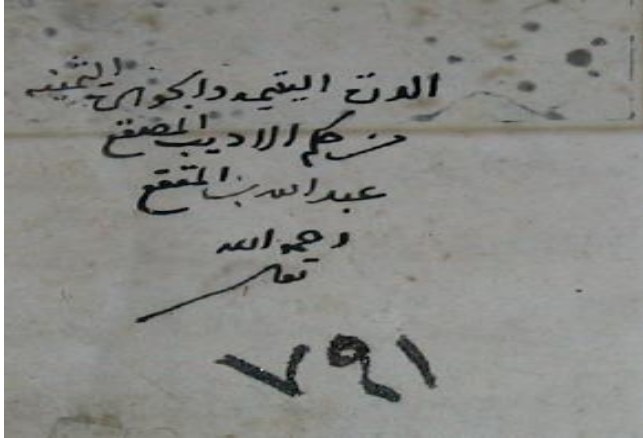 الدرة اليتيمه والجواهر الثمينه
من كلم الاديب المصقع
عبد الله بن المقفع
رحمه الله
تعالى
٧٩١